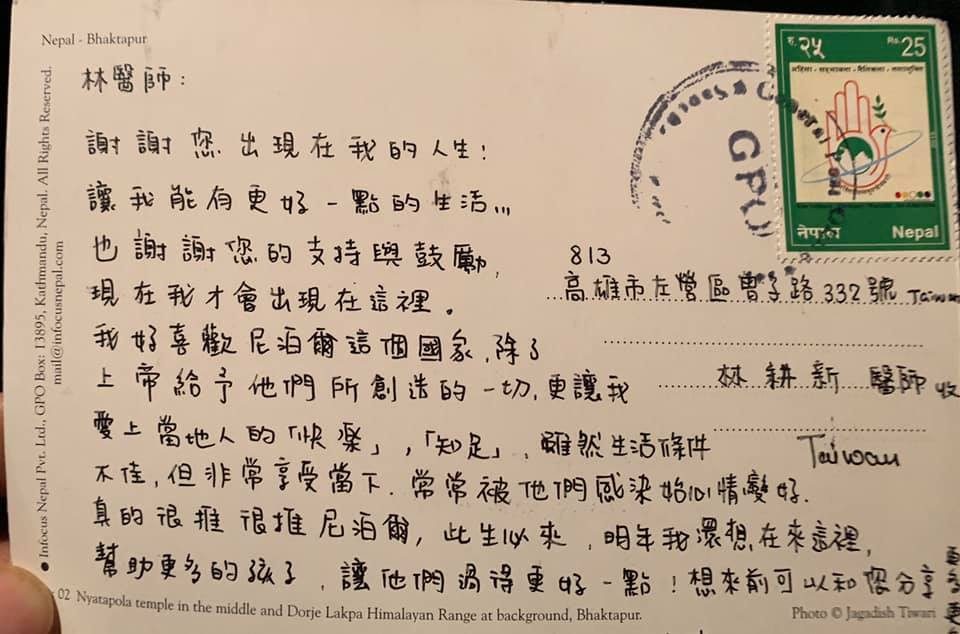 Nepal - Bhaktapur
林醫師：
謝謝您出現在我的人生！
讓我能有更好一點的生活,,,
也謝謝您的支持與鼓勵,
現在我才會出現在這裡。
我好喜歡尼泊爾這個國家,除了
上帝給予他們所創造的一切,更讓我
愛上當地人的「快樂」,「知足」,雖然生活條件
不佳,但非常享受當下.常常被他們感染始心情變好.
真的很推很推尼泊爾,此生必來,明年我還想在來這裡,
幫助更多的孩子,讓他們過得更好一點!想來前可以和您分享
रु. २५
Rs. 25
नेपाल Nepal
GPO
813
高雄市左營區曾子路332號 Taiwan
林耕新 醫師 收
Taiwan
Infocus Nepal Pvt. Ltd., GPO Box: 13895, Kathmandu, Nepal. All Rights Reserved.
mail@infocusnepal.com
02 Nyatapola temple in the middle and Dorje Lakpa Himalayan Range at background, Bhaktapur.
Photo © Jagadish Tiwari